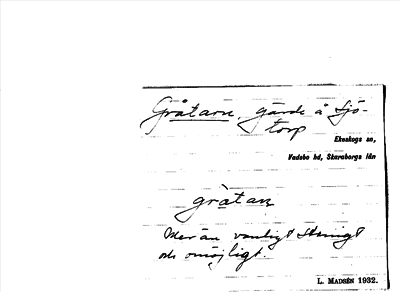 Gråtarn, gärde å Sjö-
torp
Ekeskogs sn,
Vadsbo hd, Skaraborgs län
gràtaṇ
Mer än vanligt stenigt
och omöjligt.
L. MADSÉN 1932.